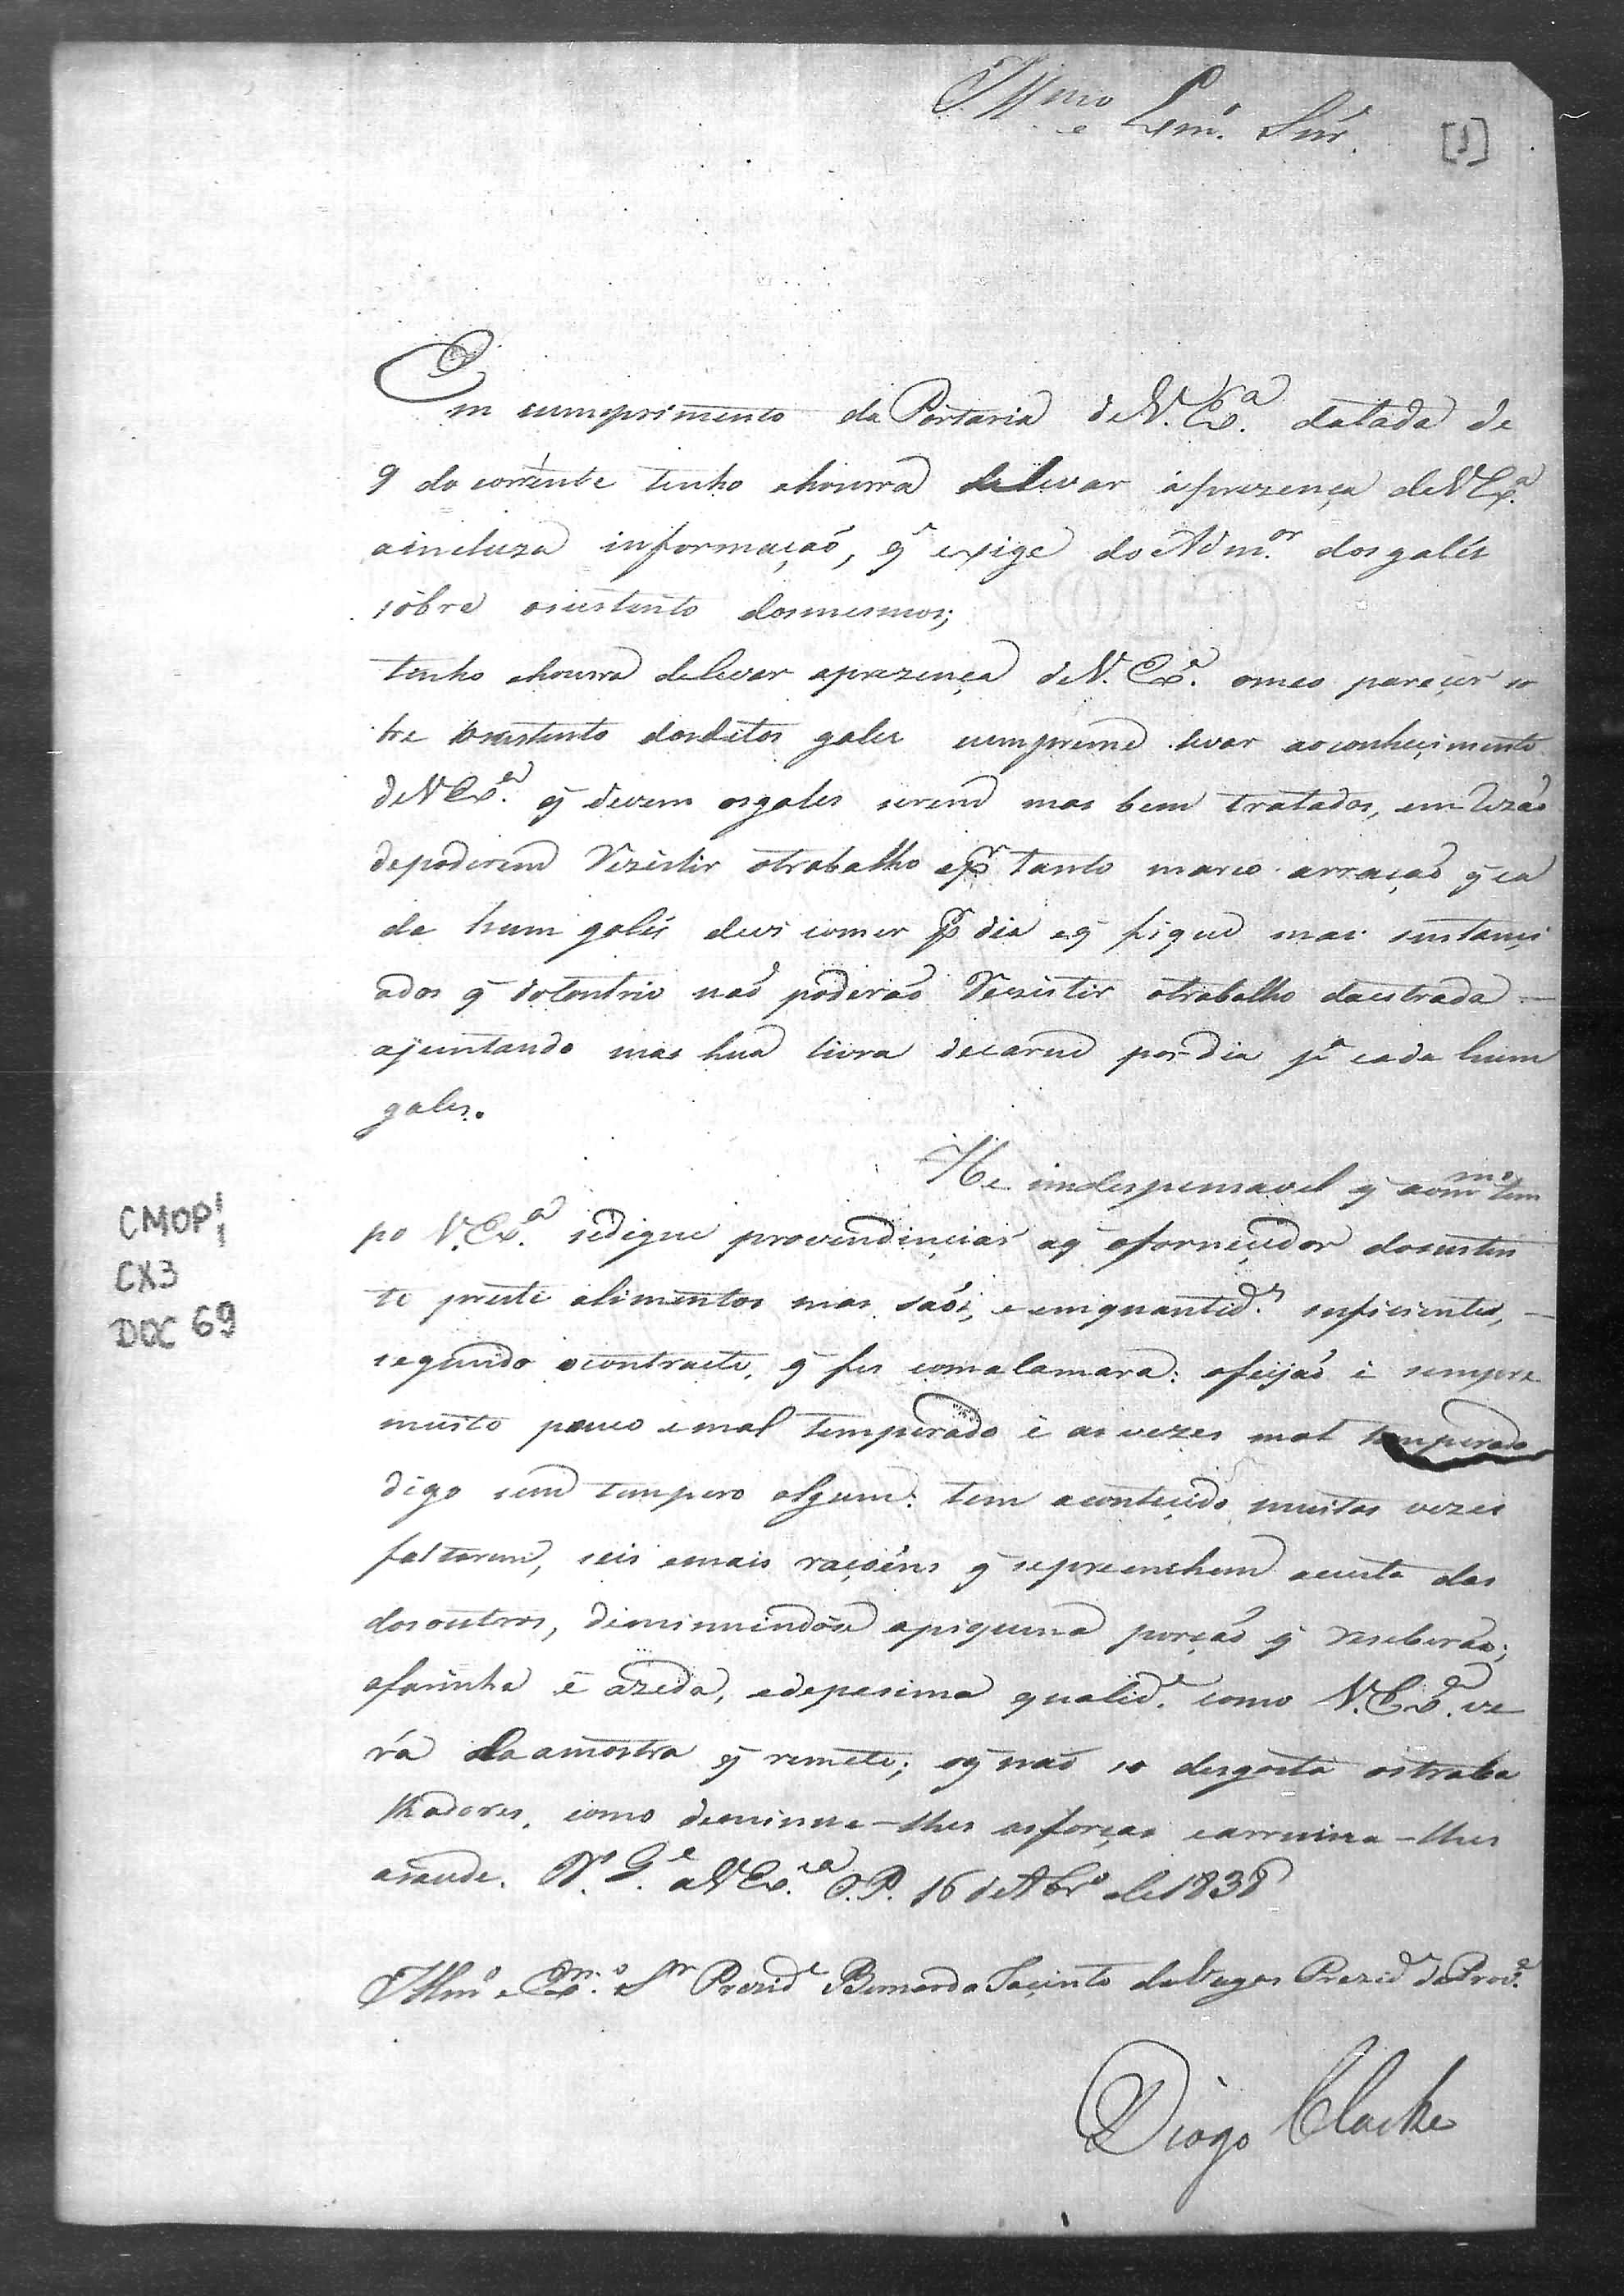 Illmo e Exmo. Snr.
[1]
Em cumprimento da Portaria de V. Exa. datada de
9 do corrente tenho ahonrra de levar aprezença de V Exa.
aincluza informação, q̃ exige do Admor. dos galés
sôbre osustento dosmesmos;
tenho ahonrra delevar aprezença de V. Exa. omeo pareçer so
bre osustento dosditos gales cumpreme levar aoconheçimento
de V Exa. q̃ devem osgales serem mas bem tratados, em Rezão
depoderem Rezestir otrabalho epr tanto marco arração q̃ ca
da hum galés deve comer pr dia eq̃ fique mais sustançi
ados q̃ docontrio não poderão Rezistir otrabalho daestrada —
ajuntando mas hua livra decarne por dia pa cada hum
gales.
He indespensavel q̃ aommo tem
po V. Exa. sedigne provendinçias aq̃ oforneçedor dosusten
to preste alimentos mas sãos, e emquantides. suficientes, —
segundo ocontracto, q̃ fes comaCamara: ofeijão é sempre
muito pouco emal temperado e as vezes mal temperado
digo sem tempero algum: tem aconteçido muitas vezes
faltarem, seis emais raçoens q̃ sepreenchem acusta das
dosoutros, diminuindose apiquena porção q̃ reseberão;
afarinha é azeda, edepesima qualide. como V. Exa. ve
rá da amostra q̃ remete; oq̃ não so desgosta ostraba
lhadores, como deminue-lhes asforças earruina-lhes
asaude. Ds. Ge. a V Exa. O. P. 16 de Abro de 1838
Illmo e Exmo. Snr Prezide Bernardo Jaçinto daVeiga Prezide daProva.
Diogo Clarke
CMOP 1
CX3
DOC 69